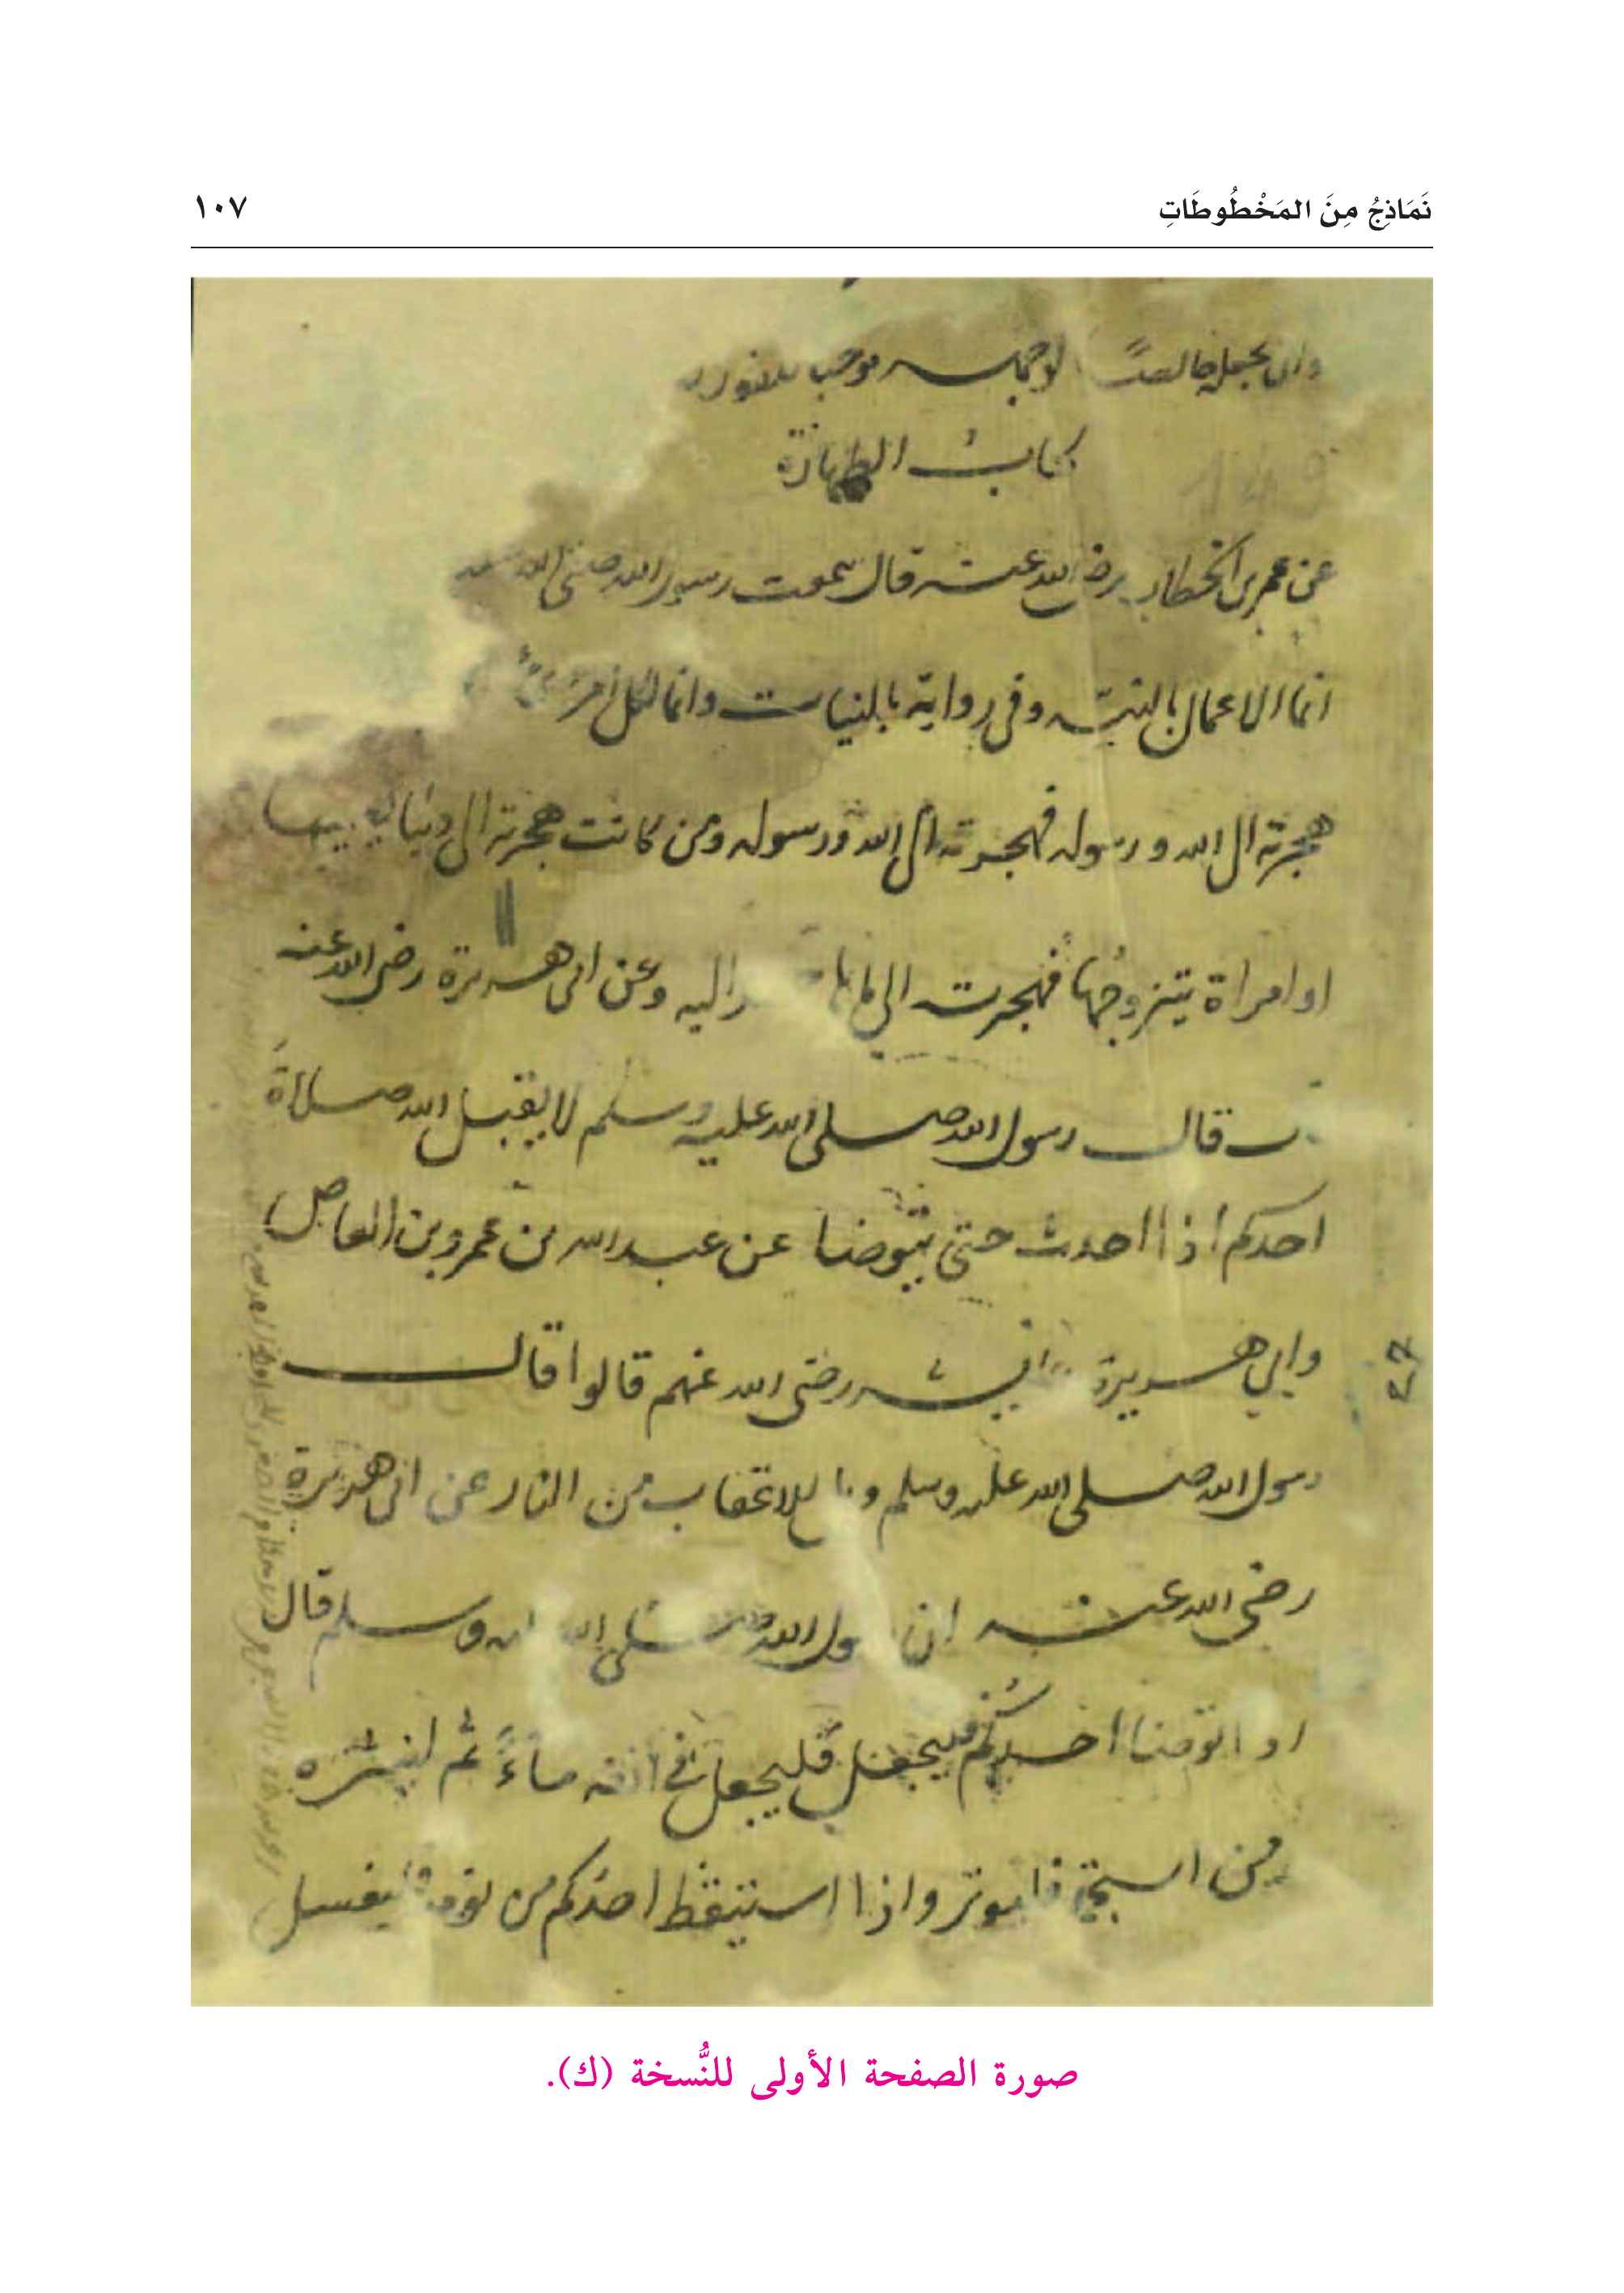 نَمَاذِجُ مِنَ المَخْطُوطَاتِ
١٠٧
وان يجعله خالصًا لوجهه موجبا للفوز
كتاب الطهارة
عن عمر بن الخطاب رضي الله عنه قال سمعت رسول الله صلى الله
انما الاعمال بالنية وفي رواية بالنيات وانما لكل امرئ
هجرته الى الله ورسوله فهجرته الى الله ورسوله ومن كانت هجرته الى دنيا يصيبها
او امراة يتزوجها فهجرت الى ما اليه وعن ابى هريرة رضى الله عنه
قال رسول الله صلى الله عليه وسلم لا يقبل الله صلاة
احدكم اذا احدث حتى يتوضا عن عبد الله بن عمرو بن العاص
وابي هريرة رضى الله عنهم قالوا قال
رسول الله صلى الله عليه وسلم للاعقاب من النار عن ابى هريرة
رضى الله عنه ان الله صلى الله وسلم قال
اذا توضا احدكم فليجعل فليجعل في انفه ماءً ثم لينتثره
من استجمر فليوتر واذا استيقظ احدكم من نومه فليغسل
صورة الصفحة الأولى للنُّسخة (ك).